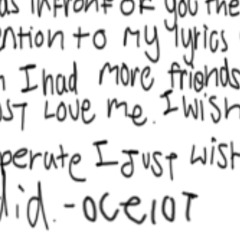 as infront of you the
ntion to my lyrics
I had more friends
ST LOVE me. I wish
perate I JUST wish
did. -OCEIOT